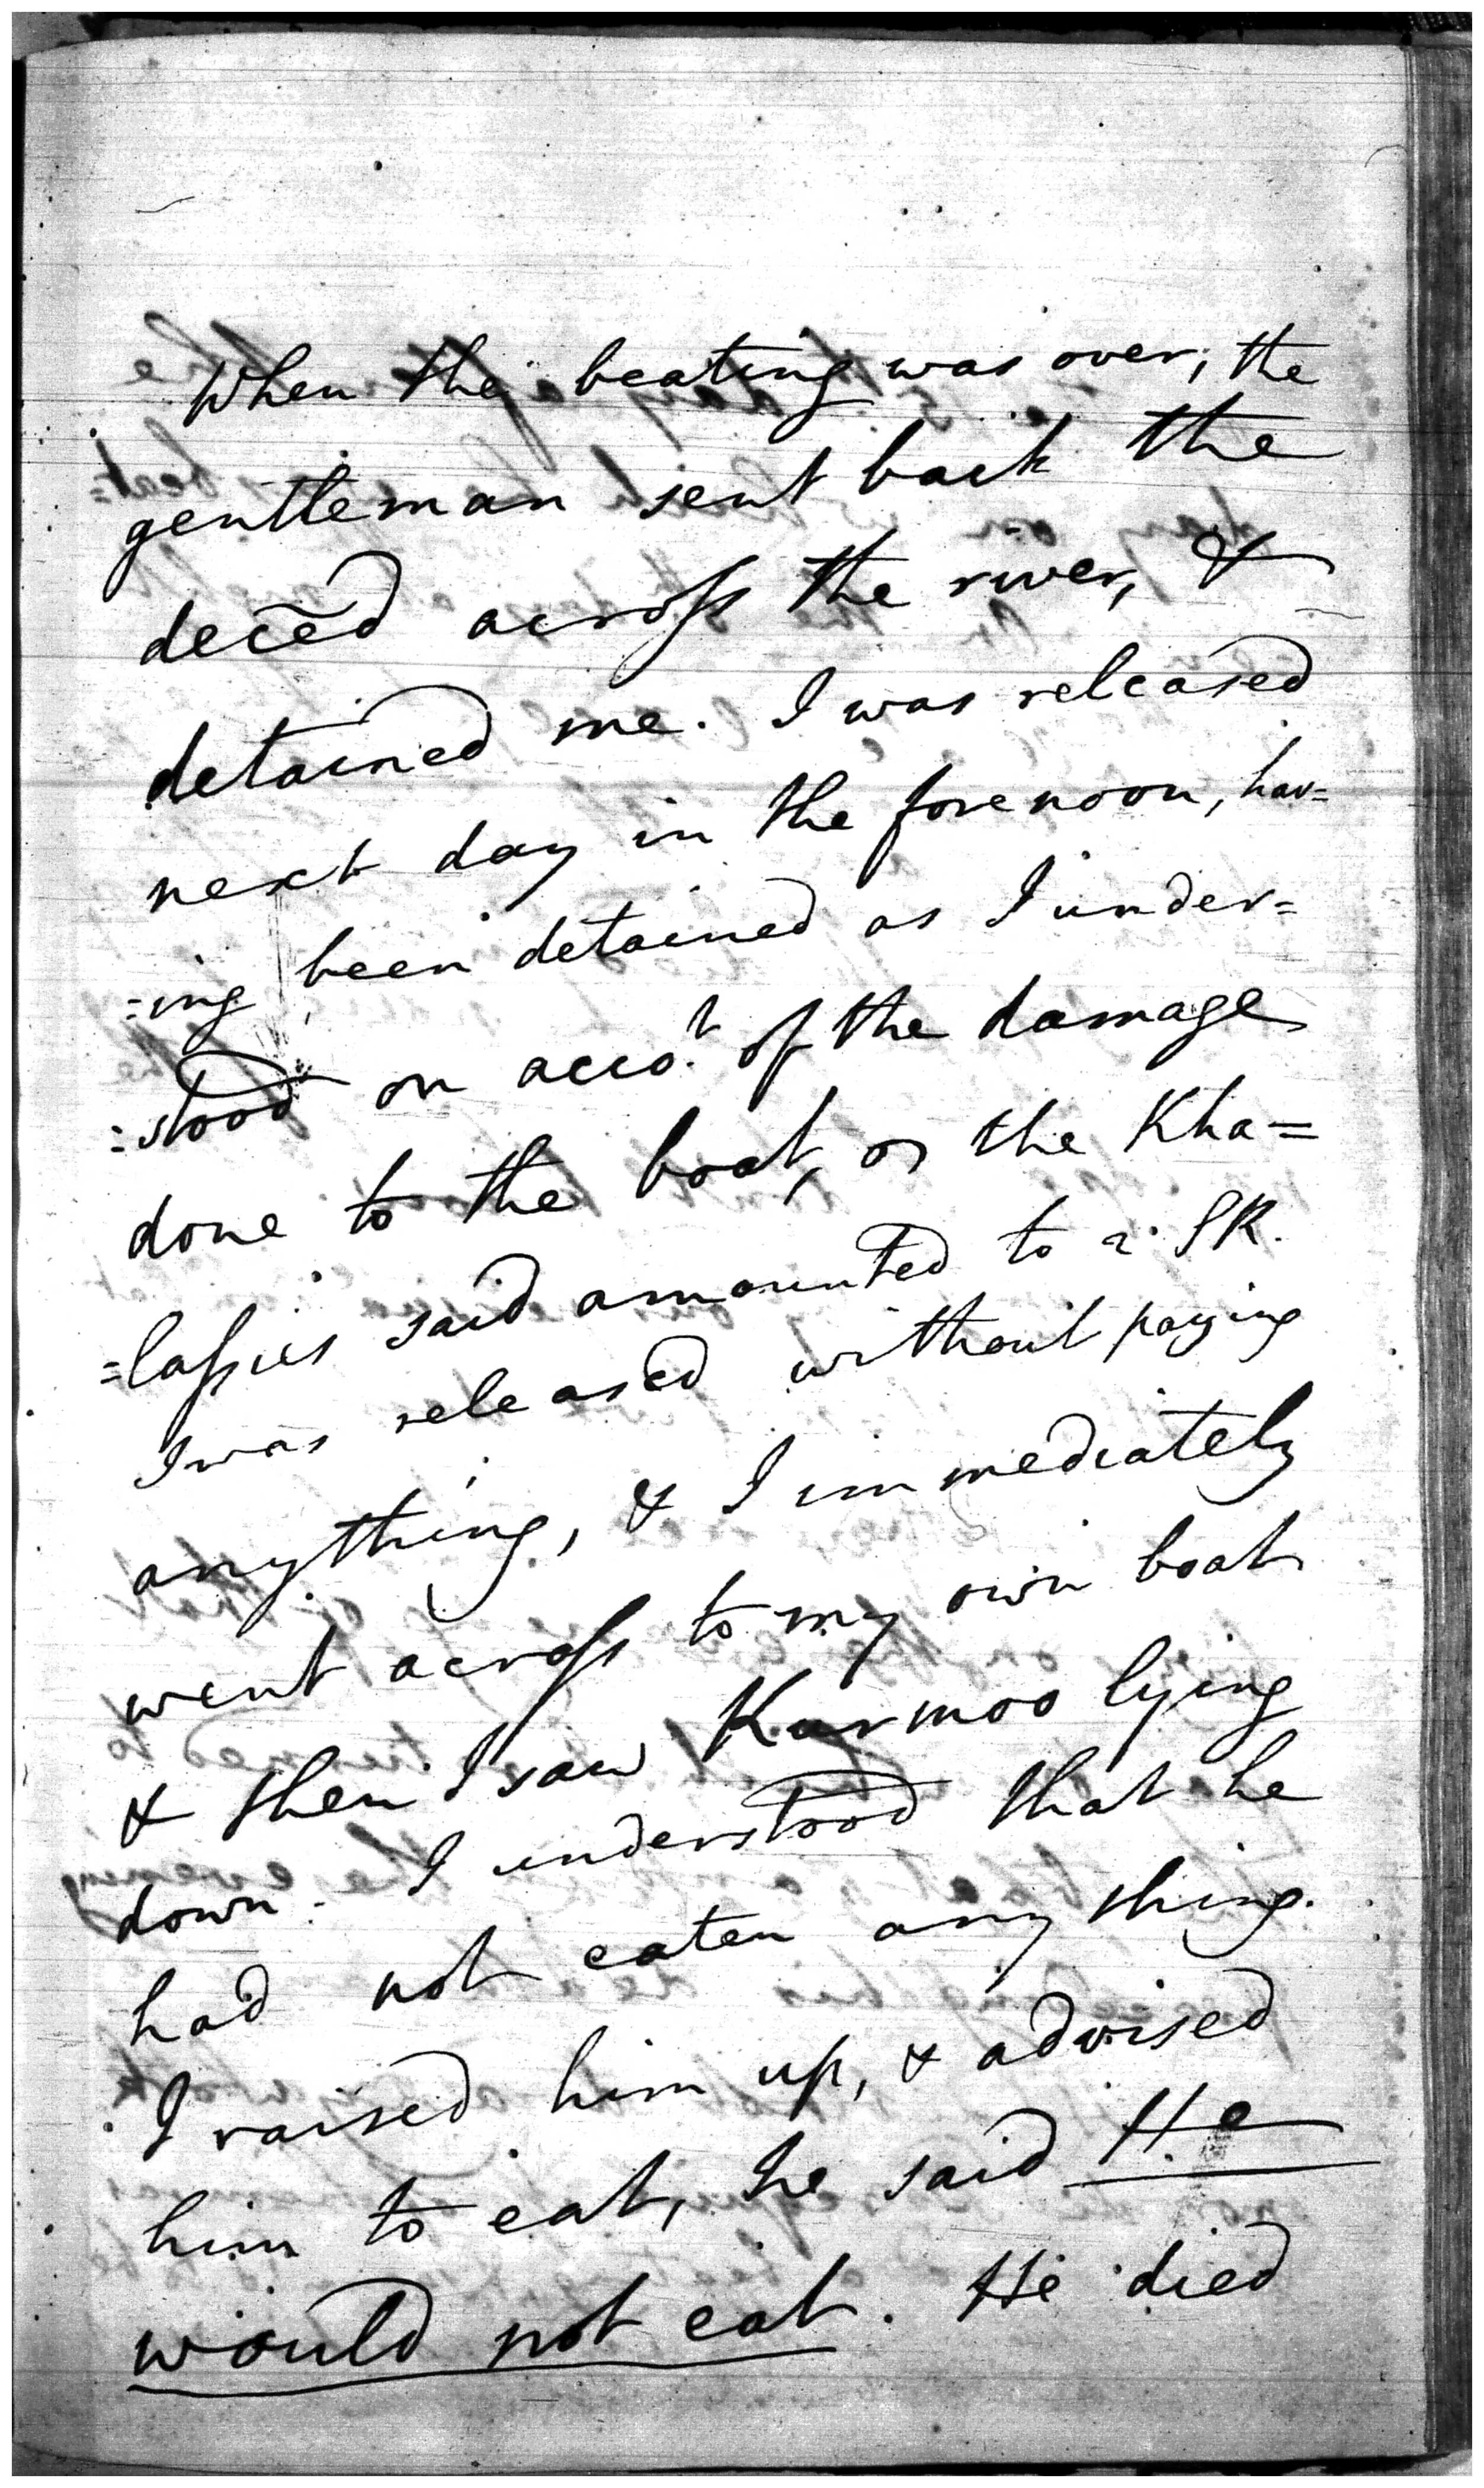 When the beating was over, the
gentleman sent back the
deced across the river, &
detained me. I was released
next day in the forenoon, hav=
=ing been detained as I under=
=stood on acco.t of the damage
done to the boat, or the Kha=
=lassies said amounted to 2. SR.
I was released without paying
anything, & I immediately
went across to my own boat
& then I saw Kurmoo lying
down. I understood that he
had not eaten any thing.
I raised him up, & advised
him to eat, he said He
would not eat. He died